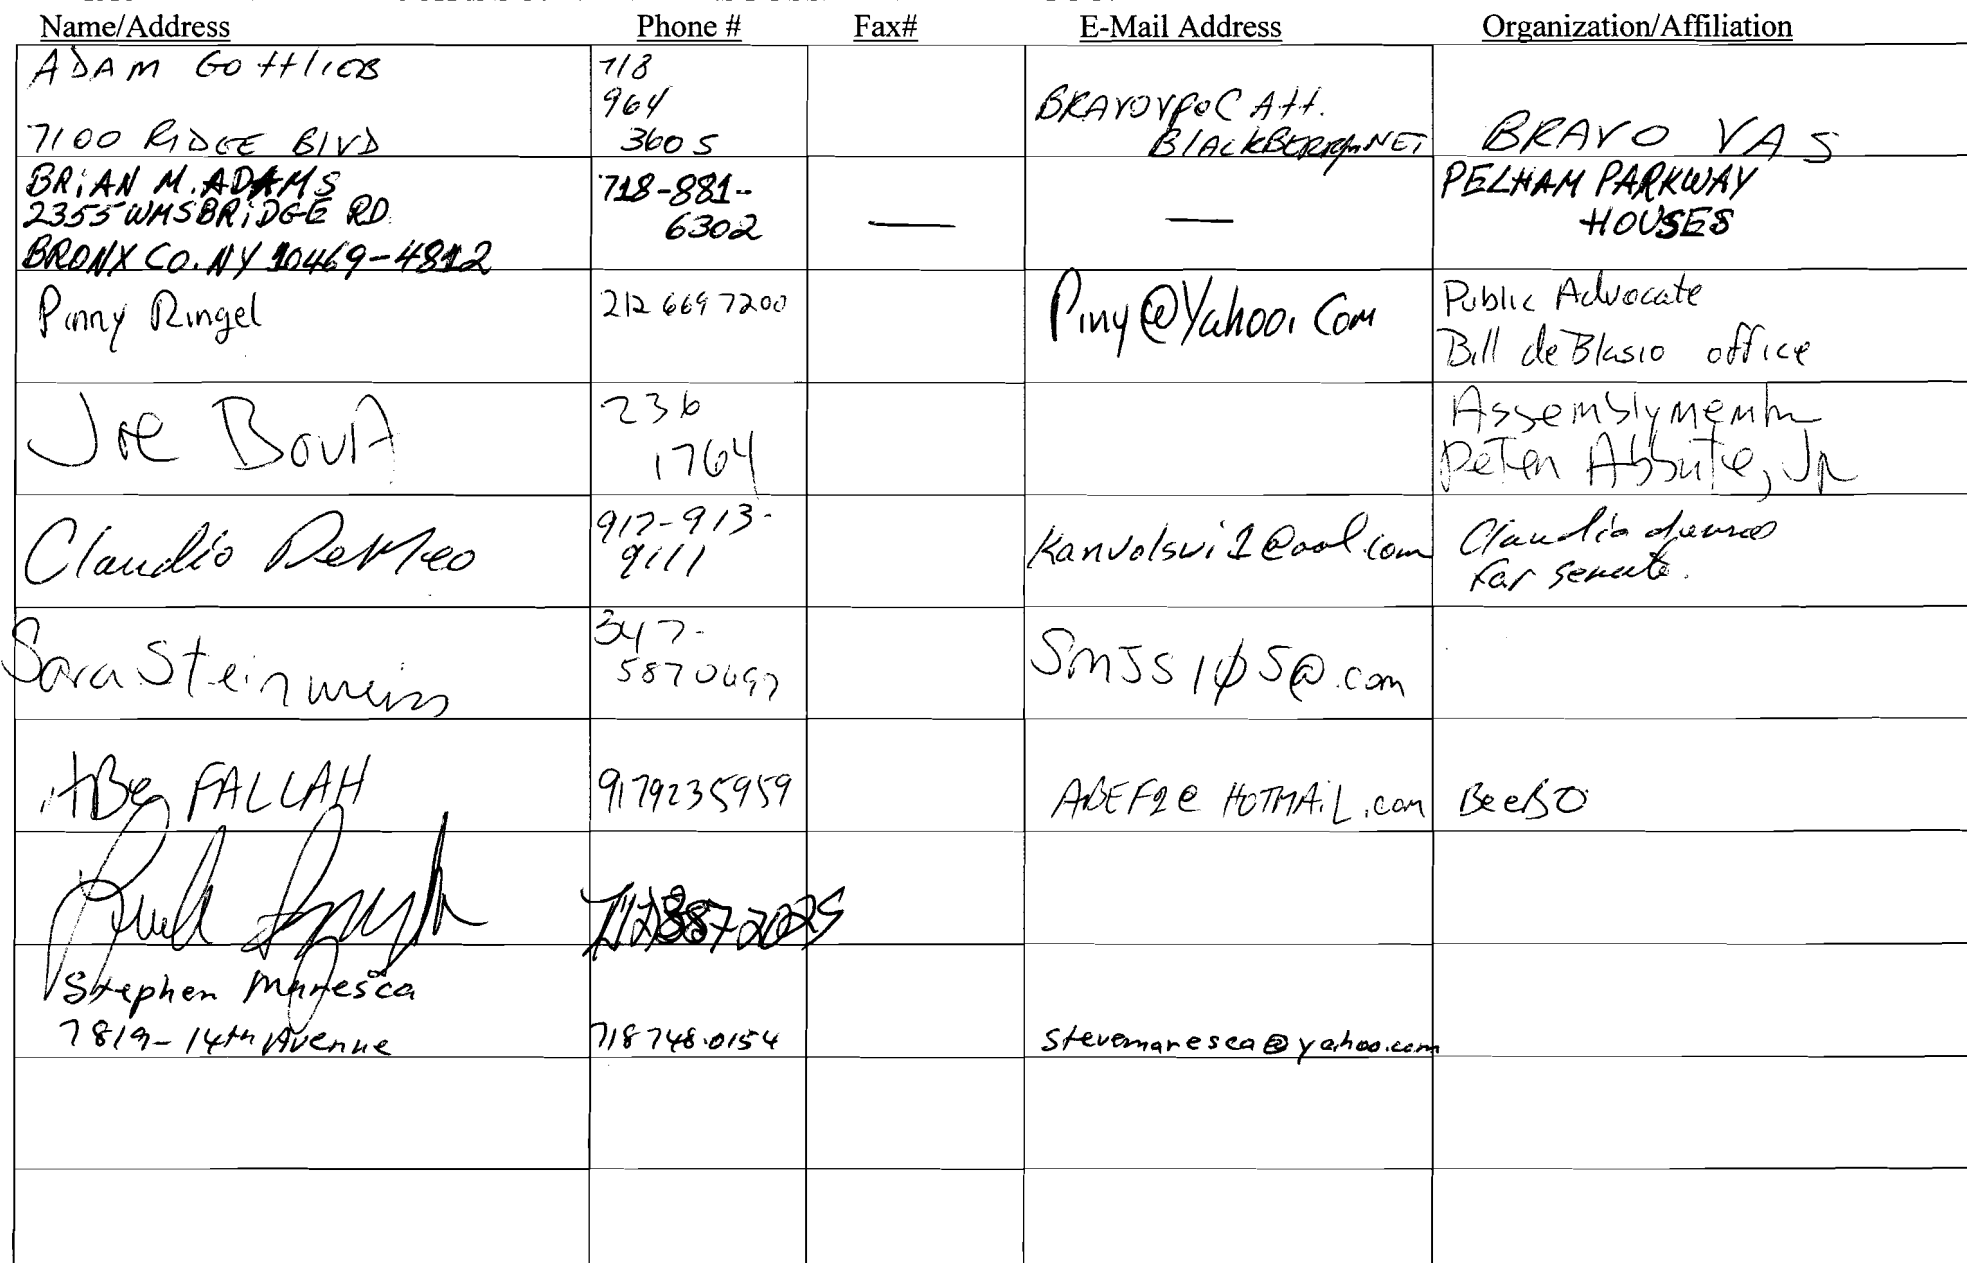 Name/Address Phone # Fax# E-Mail Address Organization/Affiliation
ADAM GOttlIEB
7100 RIDGE BlVD
718
964
3605
BRAVOVPOC Att.
BlACKBERRY.NET
BRAVO VAS
BRiAN M. ADAMS
2355 WMSBRiDGE RD.
BRONX CO. NY 10469-4812
718-881-
6302
—
—
PELHAM PARKWAY
HOUSES
Pinny Ringel
212 669 7200
Piny@Yahoo.Com
Public Advocate
Bill de Blasio office
Joe BovA
236
1764
Assemblymember
Peter Abbate, Jr
Claudio DeMeo
917-913-
9111
Kanvolsvi1@aol.com
Claudio
for senate.
Sara Steinweiss
347-
5870697
SMJS1055@.com
ABe FALLAH
9179235959
ABEF2@HOTMAiL.com
BeeBO
Stephen Maresca
7819-14th Avenue
718 748.0154
stevemaresca@yahoo.com